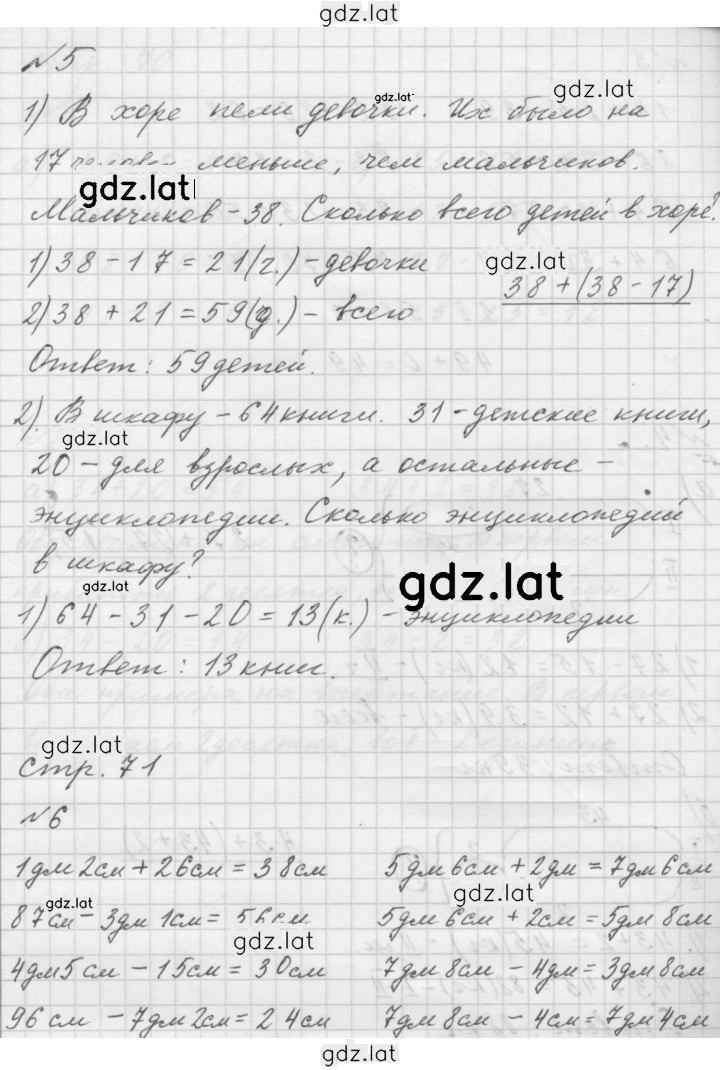 gdz.lat
№5
gdz.lat gdz.lat
1) В хоре пели девочки. Их было на
17 меньше, чем мальчиков.
gdz.lat
Мальчиков - 38. Сколько всего детей в хоре?
1) 38 - 17 = 21 (ч.) - девочки
gdz.lat
38 + (38 - 17)
2) 38 + 21 = 59 (д.) - всего
Ответ: 59 детей.
2). В шкафу - 64 книги. 31 - детские книги,
gdz.lat
20 - для взрослых, а остальные -
энциклопедии. Сколько энциклопедий
в шкафу?
gdz.lat gdz.lat
1) 64 - 31 - 20 = 13 (к.) - энциклопедии
Ответ: 13 книг.
gdz.lat
стр. 71
№6
1дм 2см + 26см = 38см
gdz.lat
87см - 3дм 1см = 56см
gdz.lat
4дм 5см - 15см = 30см
96см - 7дм 2см = 24см
5дм 6см + 2дм = 7дм 6см
gdz.lat
5дм 6см + 2см = 5дм 8см
7дм 8см - 4дм = 3дм 8см
7дм 8см - 4см = 7дм 4см
gdz.lat